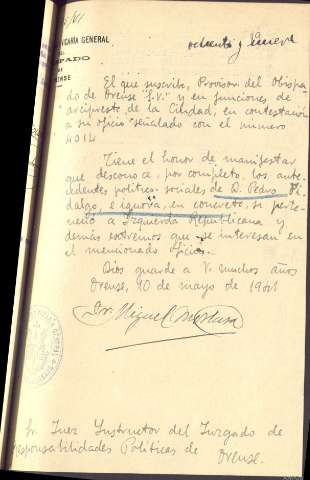 5/41
ochenta y nueve
VICARÍA GENERAL
DEL
OBISPADO
DE
ORENSE
El que suscribe, Provisor del Obispa-
do de Orense "S.V." y en funciones de
arcipreste de la Ciudad, en contestación
a su oficio señalado con el número
4014
Tiene el honor de manifestar
que desconoce, por completo, los ante-
cedentes político-sociales de D. Pedro
dalgo, e ignora, en concreto, si perte-
neció a Izquierda Republicana y
demás extremos que se interesan en
el mencionado oficio.
Dios guarde a V. muchos años
Orense, 10 de mayo de 1941
Dr. Miguel
Sr. Juez Instructor del Juzgado de
responsabilidades Políticas de
Orense.